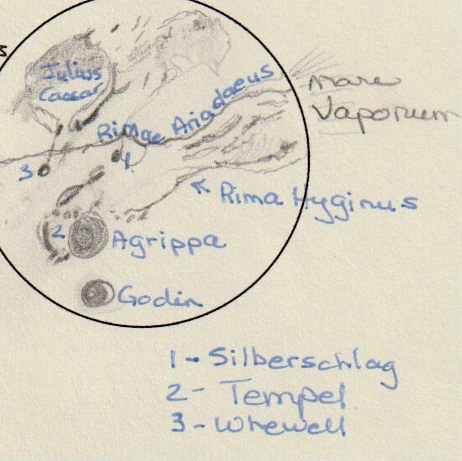 s
Julius
Caesar
Rimae Ariadaeus
Mare
Vaporum
1
3
Rima Hyginus
2
Agrippa
Godin
1 - Silberschlag
2 - Tempel
3 - Whewell